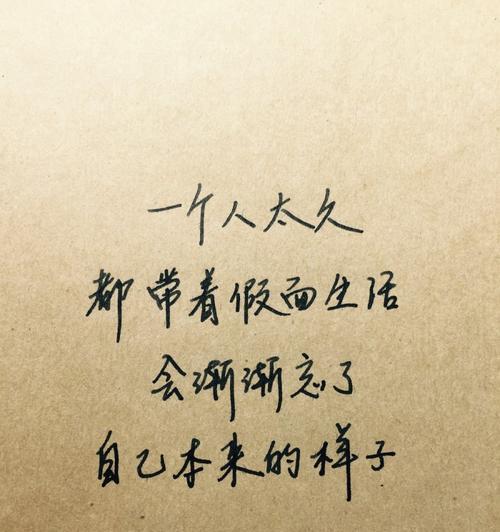 一个人太久
都带着假面生活
会渐渐忘了
自己本来的样子